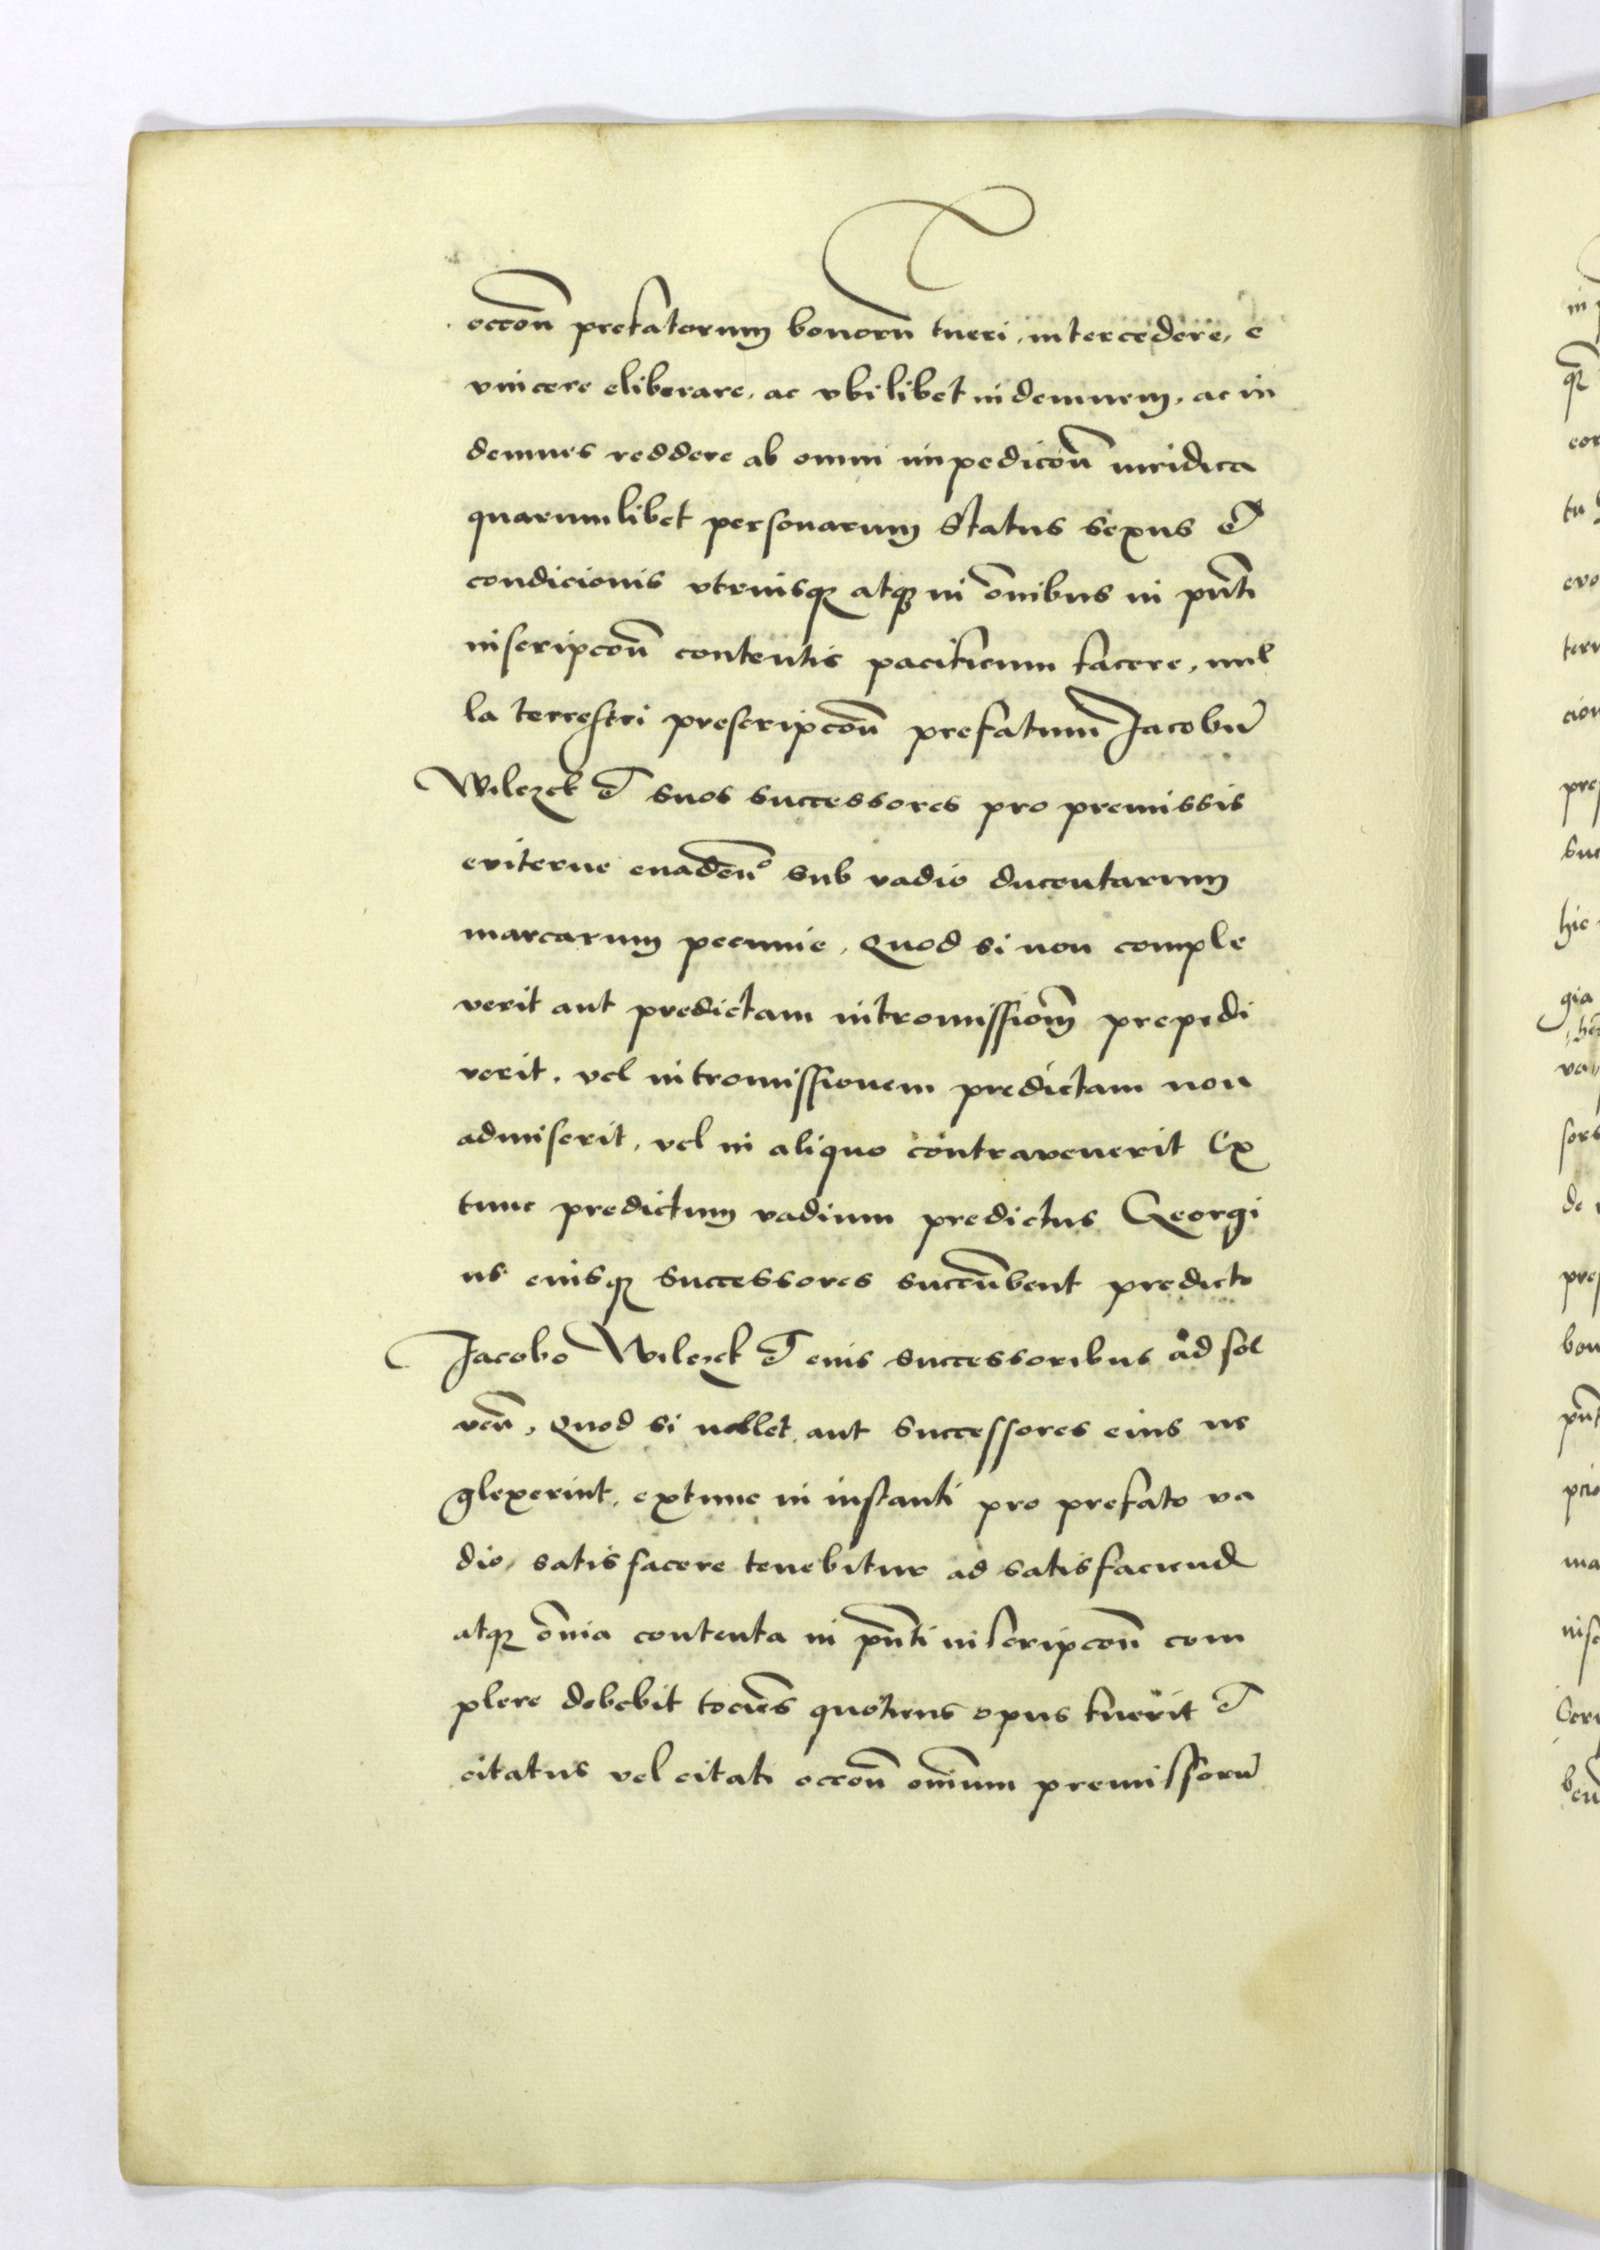 occon̄ prefatorum bonorū tueri, intercedere, e
vincere eliberare, ac vbilibet indemnem, ac in
demnes reddere ab omni impedicon̄ iuridica
quarumlibet personarum status sexus et
condicionis vtriusq atq in om̄ibus in pn̄ti
inscripcon̄ contentis pacificum facere, nul
la terrestri prescripcon̄ prefatum Jacobū
Wilczek et suos successores pro premissis
eviterne euaden̄o sub vadio ducentarum
marcarum pecunie, Quod si non comple
verit aut predictam intromission̄em prepedi
verit, vel intromissionem predictam non
admiserit, vel in aliquo contravenerit Ex
tunc predictum vadium predictus Georgi
us eiusq successores succūbent predicto
Jacobo Wilczek et eius successoribus ad sol
ven̄, Quod si nollet aut successores eius ne
glexerint, extunc in instanti pro prefato va
dio, satisfacere tenebitur ad satisfaciend
atq om̄ia contenta in pn̄ti inscripcon̄ com
plere debebit tocies quotiens opus fuerit et
citatus vel citati occon̄ omnium premissorū